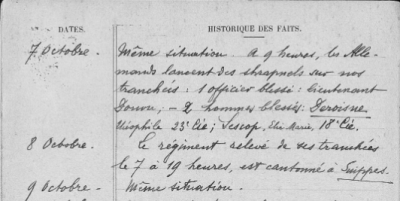 DATES. HISTORIQUE DES FAITS.
7 Octobre. Même situation. A 9 heures, les Alle-
mands lancent des shrapnels sur nos
tranchées: 1 officier blessé: lieutenant
2 hommes blessés: Deroisne
Théophile 23e Cie; Marie, 18e Cie.
8 Octobre. Le régiment relevé de ses tranchées
le 7 à 19 heures, est cantonné à Suippes.
9 Octobre. Même situation.